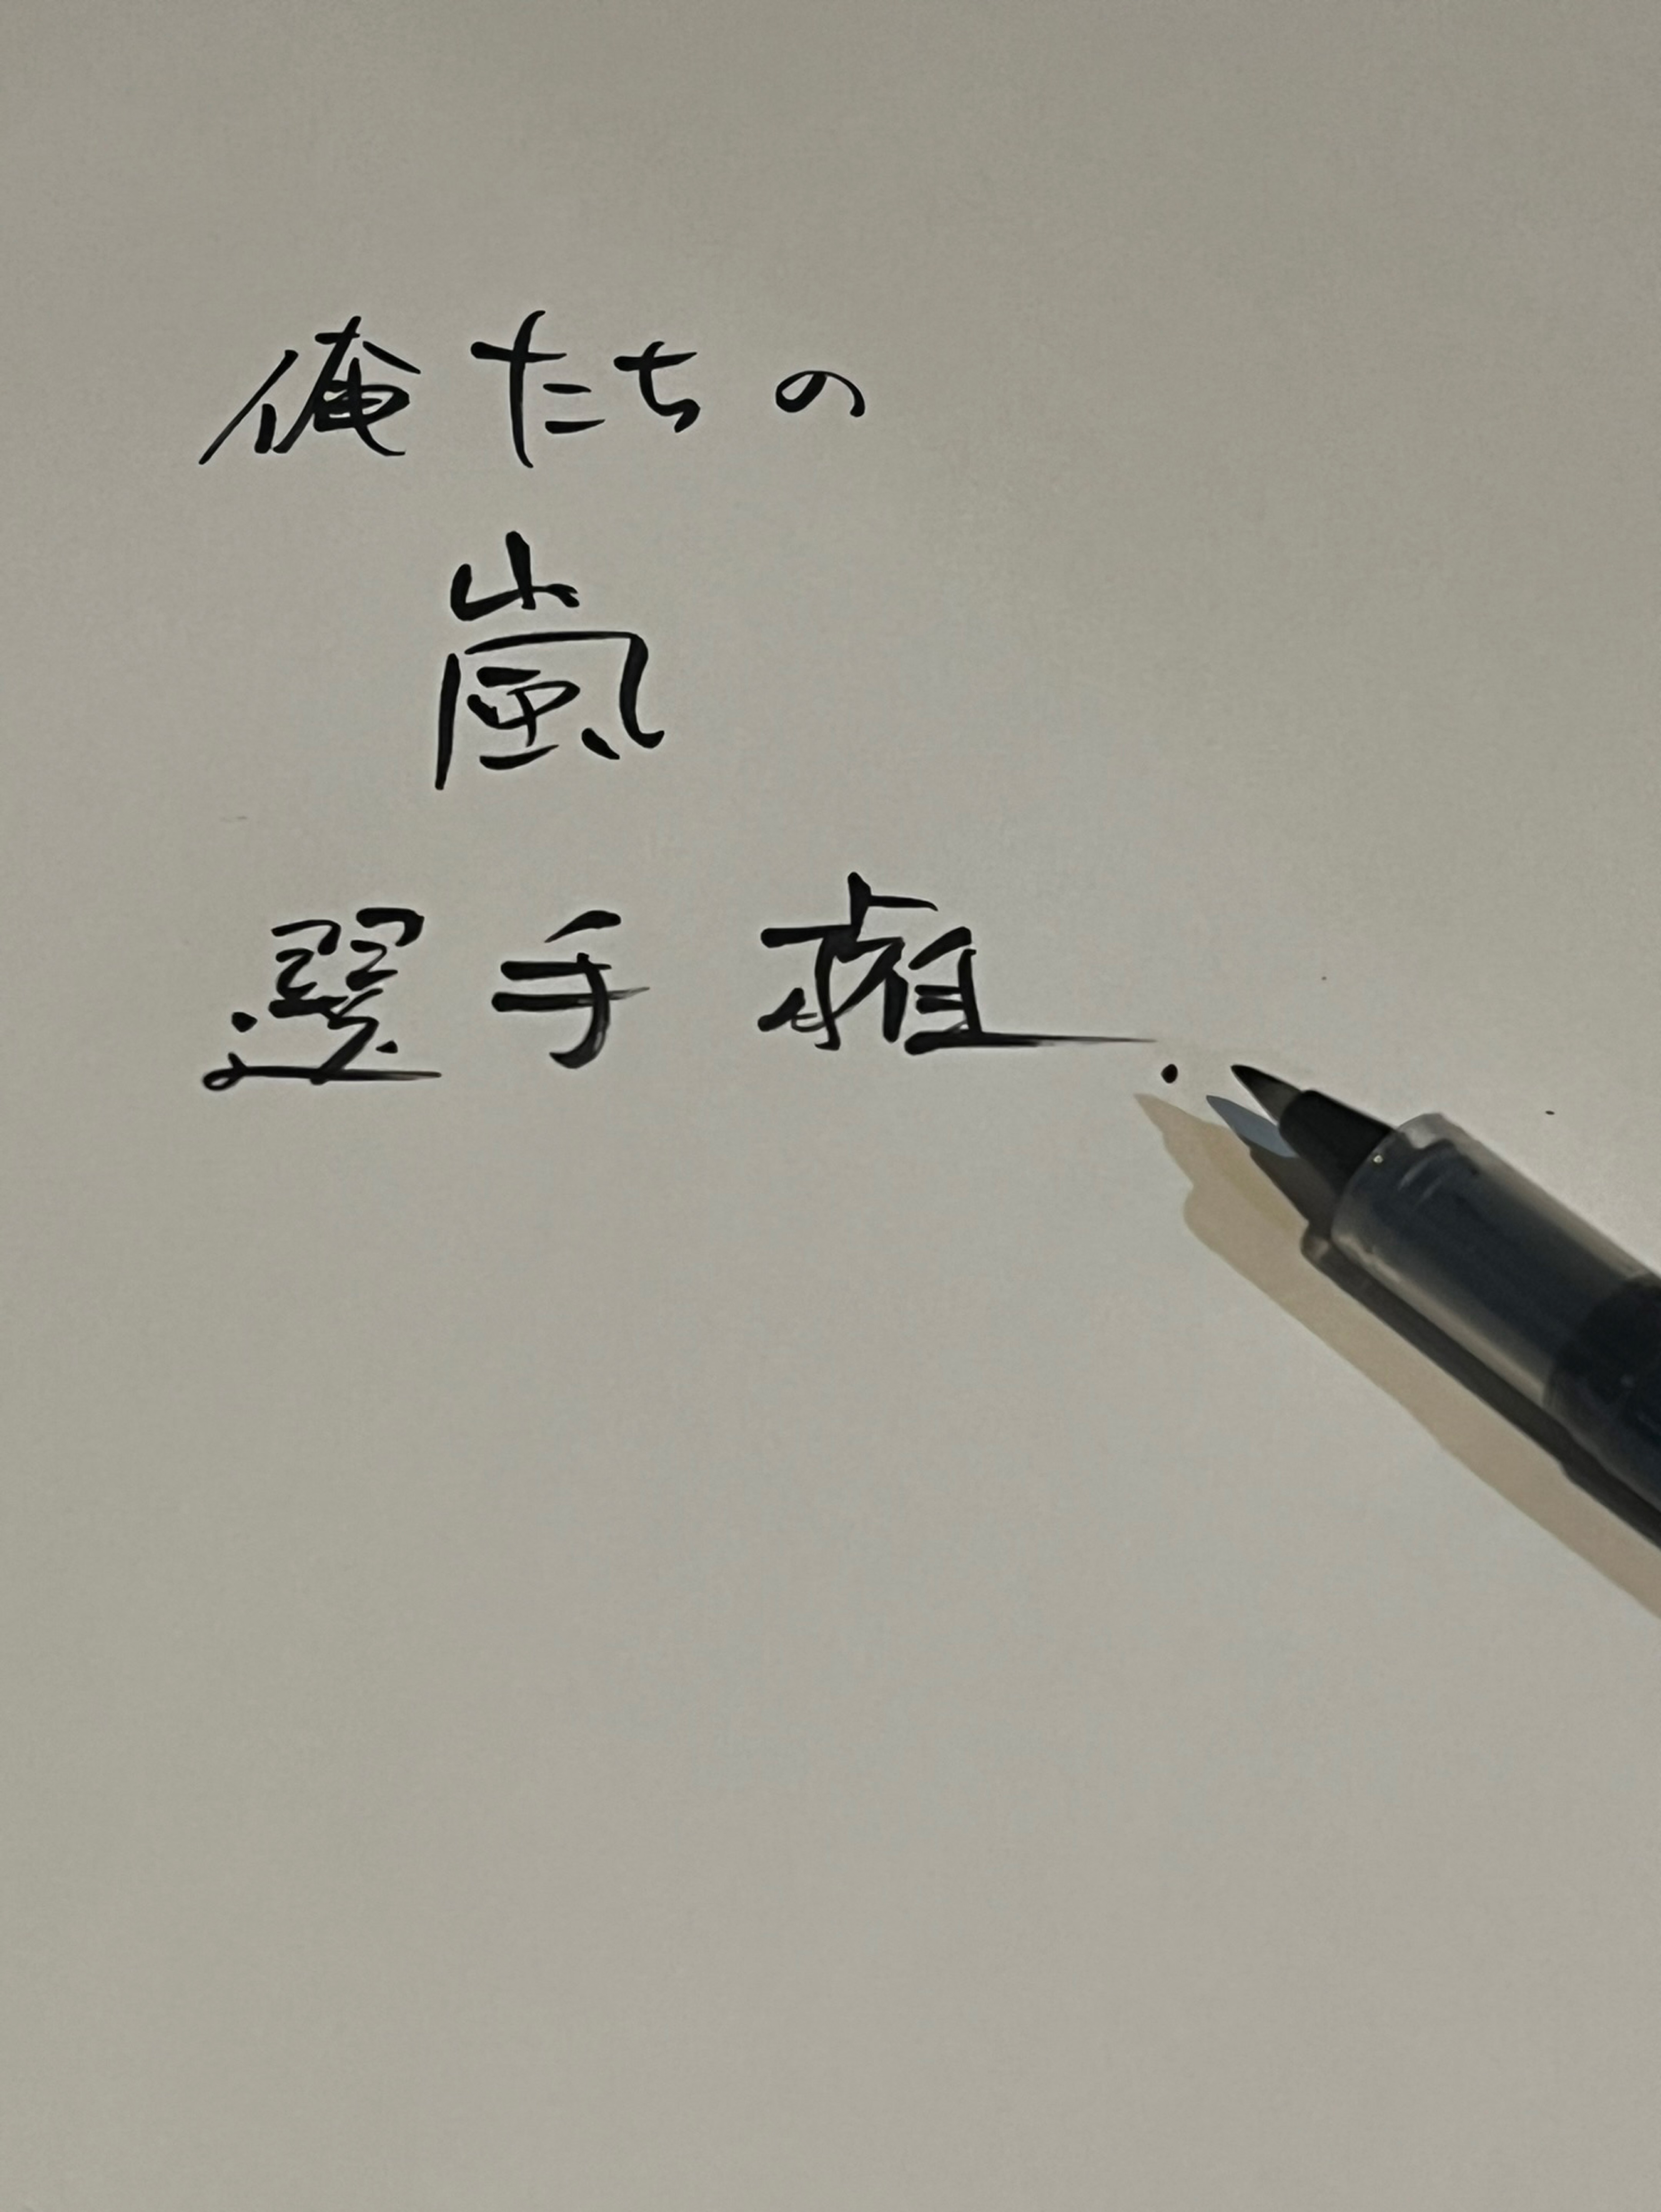 俺たちの
嵐
選手権.